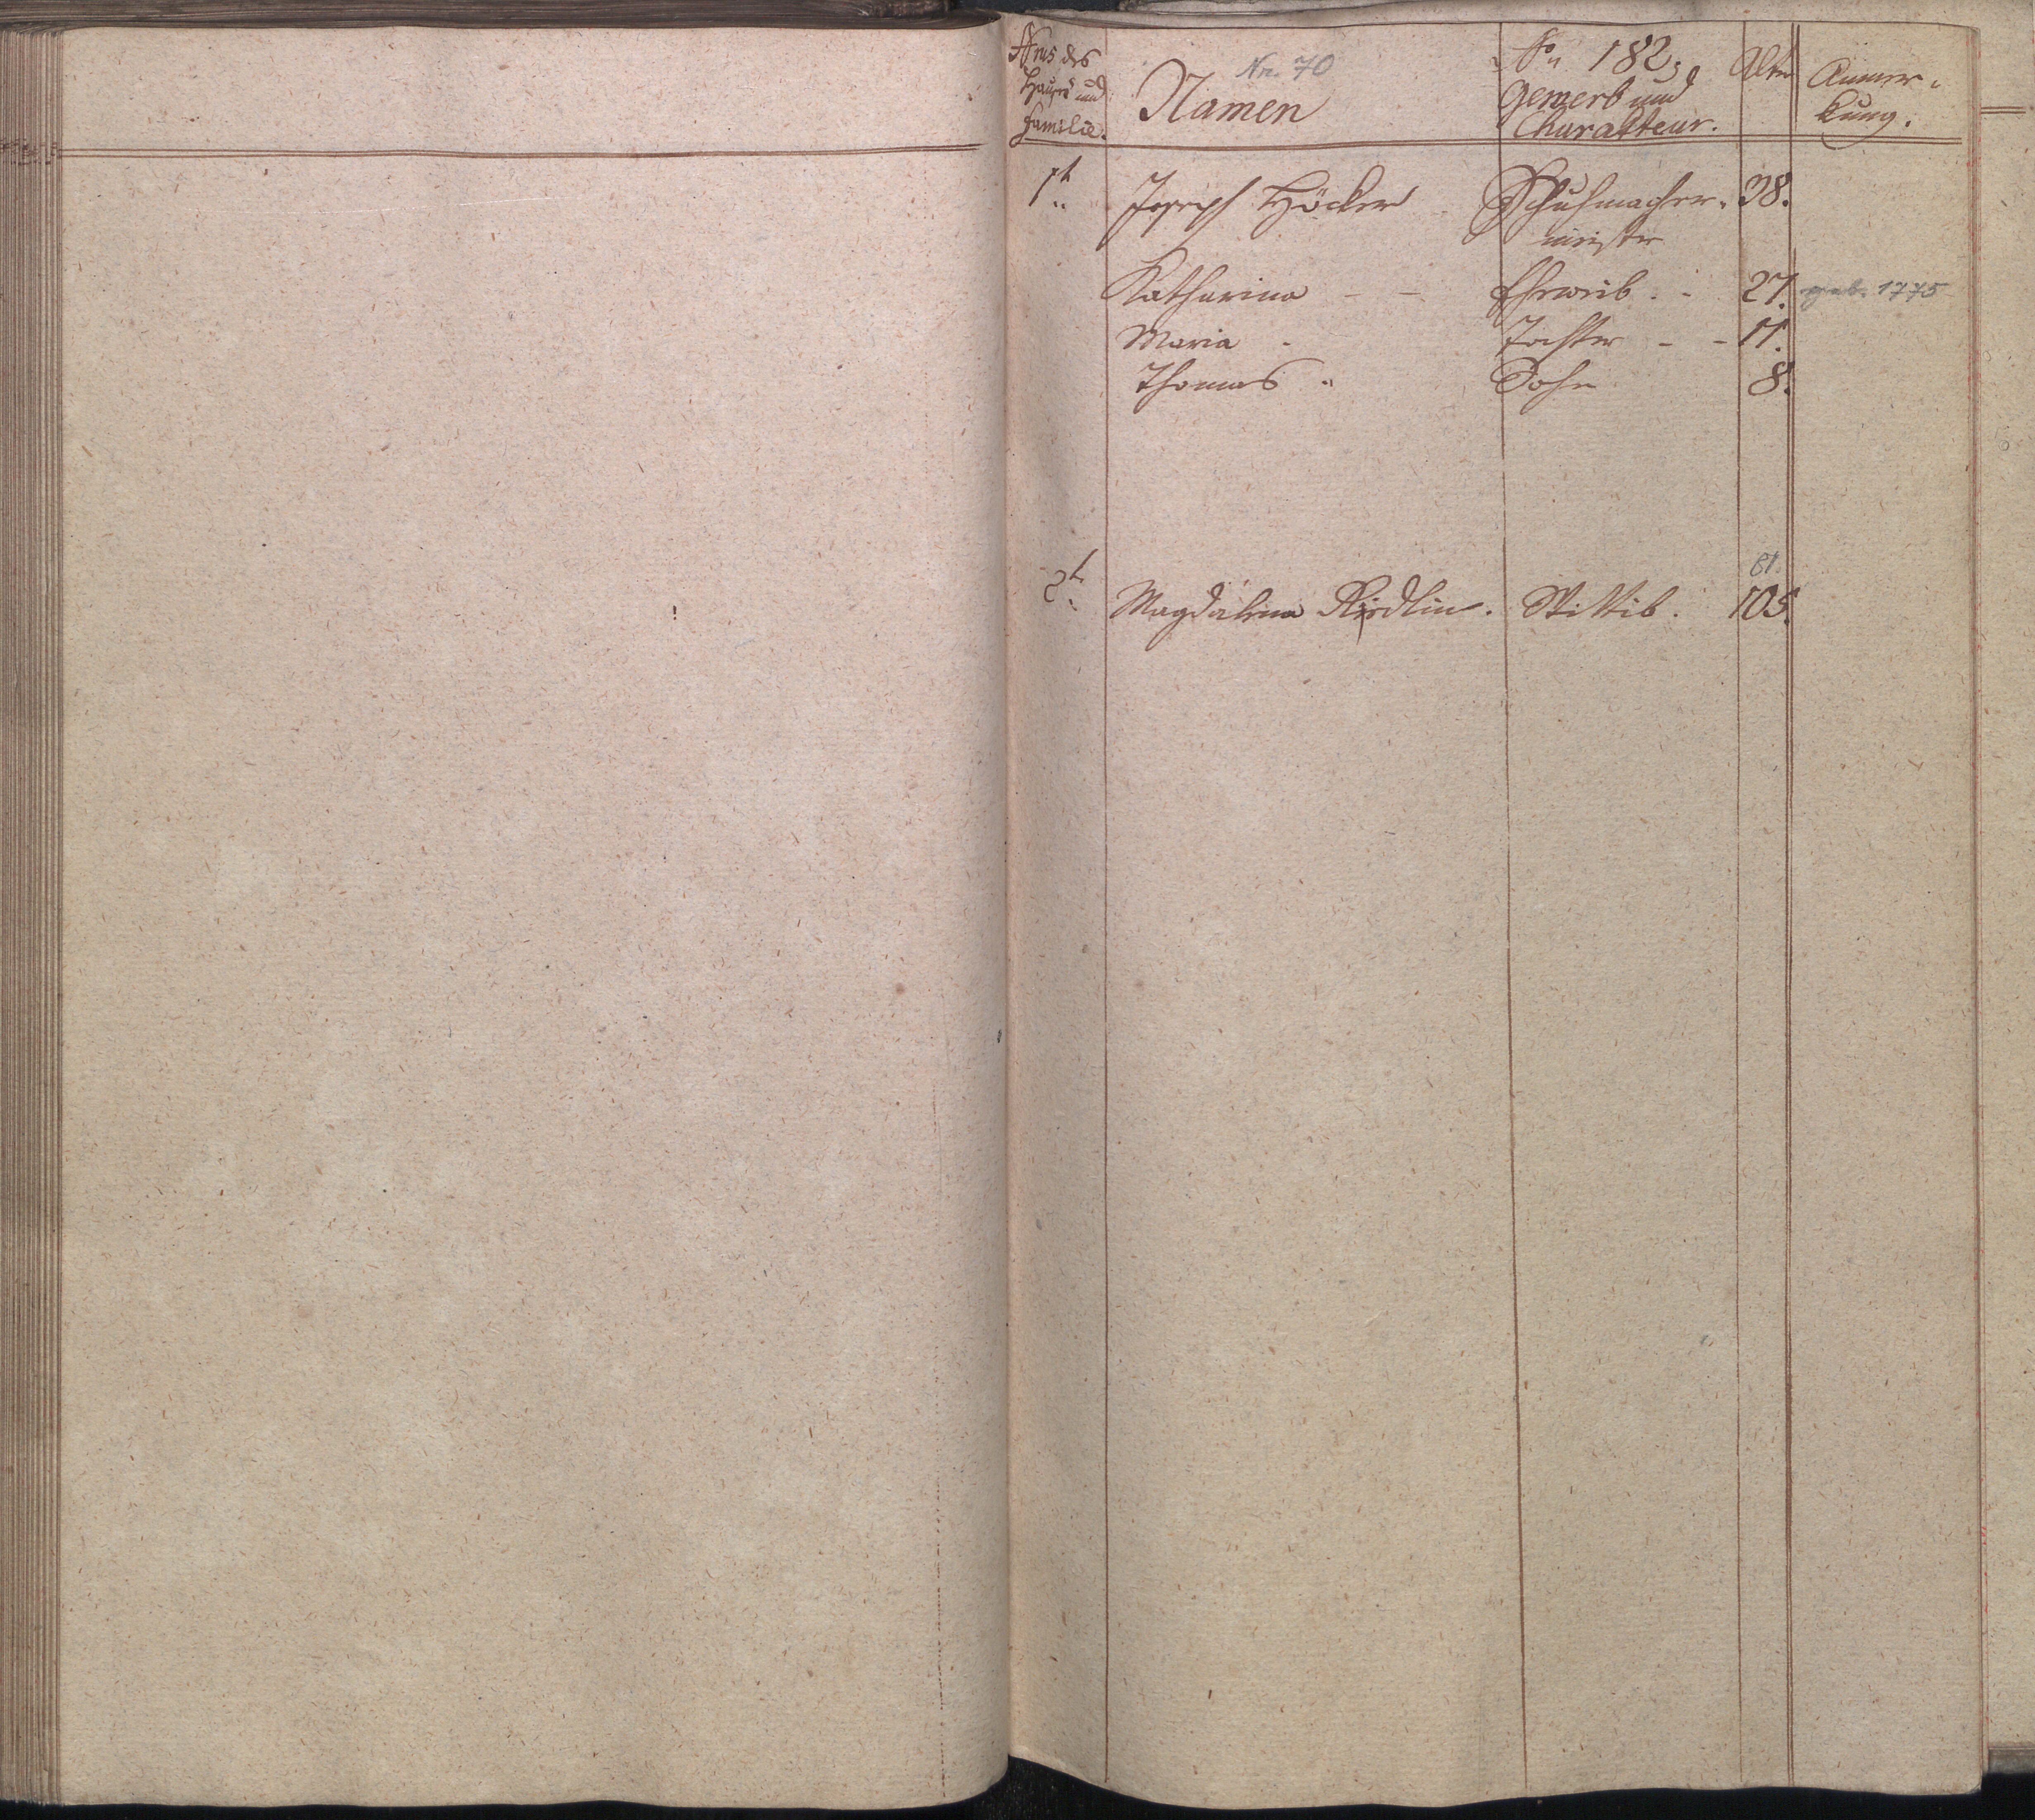 Nrus des
Hauses und
Familie.
Nr. 70
Namen
No 182,
Gewerb und
Charakteur.
Alter
Anmer-
kung.
1t Joseph Höcker Schuhmacher- 38.
meister
Katharina - - Eheweib . - 27. geb. 1775
Maria - Tochter - - 11.
Thomas " Sohn 8.
61.
2t Magdalena Riedlin. Wittib. 105.